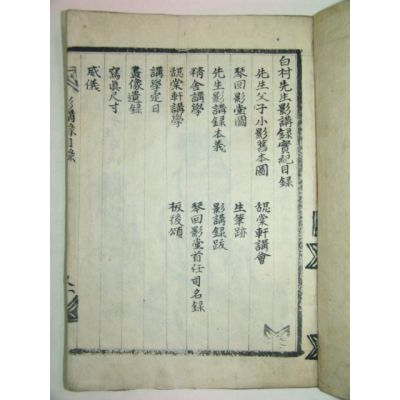 白村先生影講錄實記目錄
先生父子小影舊本圖
憩棠軒講會
琴回影堂圖
生筆跡
先生影講錄本義
影講錄跋
精舍講學
琴回影堂首任司名錄
憩棠軒講學
板後頌
講學定日
畫像遺錄
寫眞尺寸
威儀
影講錄目錄